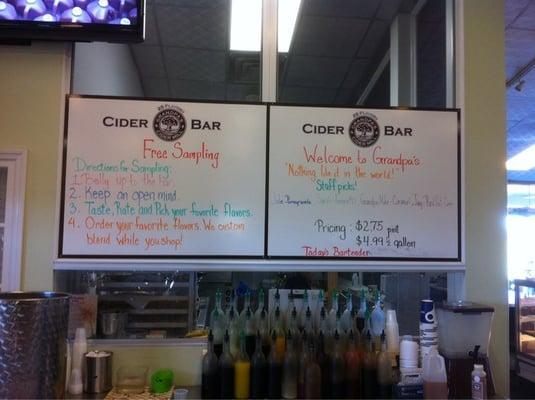 25 FLAVORS
CIDER BAR
Free Sampling
Directions for Sampling:
1. Belly up to the bar.
2. Keep an open mind.
3. Taste, Rate and Pick your favorite flavors.
4. Order your favorite flavors. We custom
blend while you shop!
25 FLAVORS
CIDER BAR
Welcome to Grandpa's
"Nothing like it in the world!"
Staff picks!
Pricing: $2.75 pint
$4.99 ½ gallon
Today's Bartender